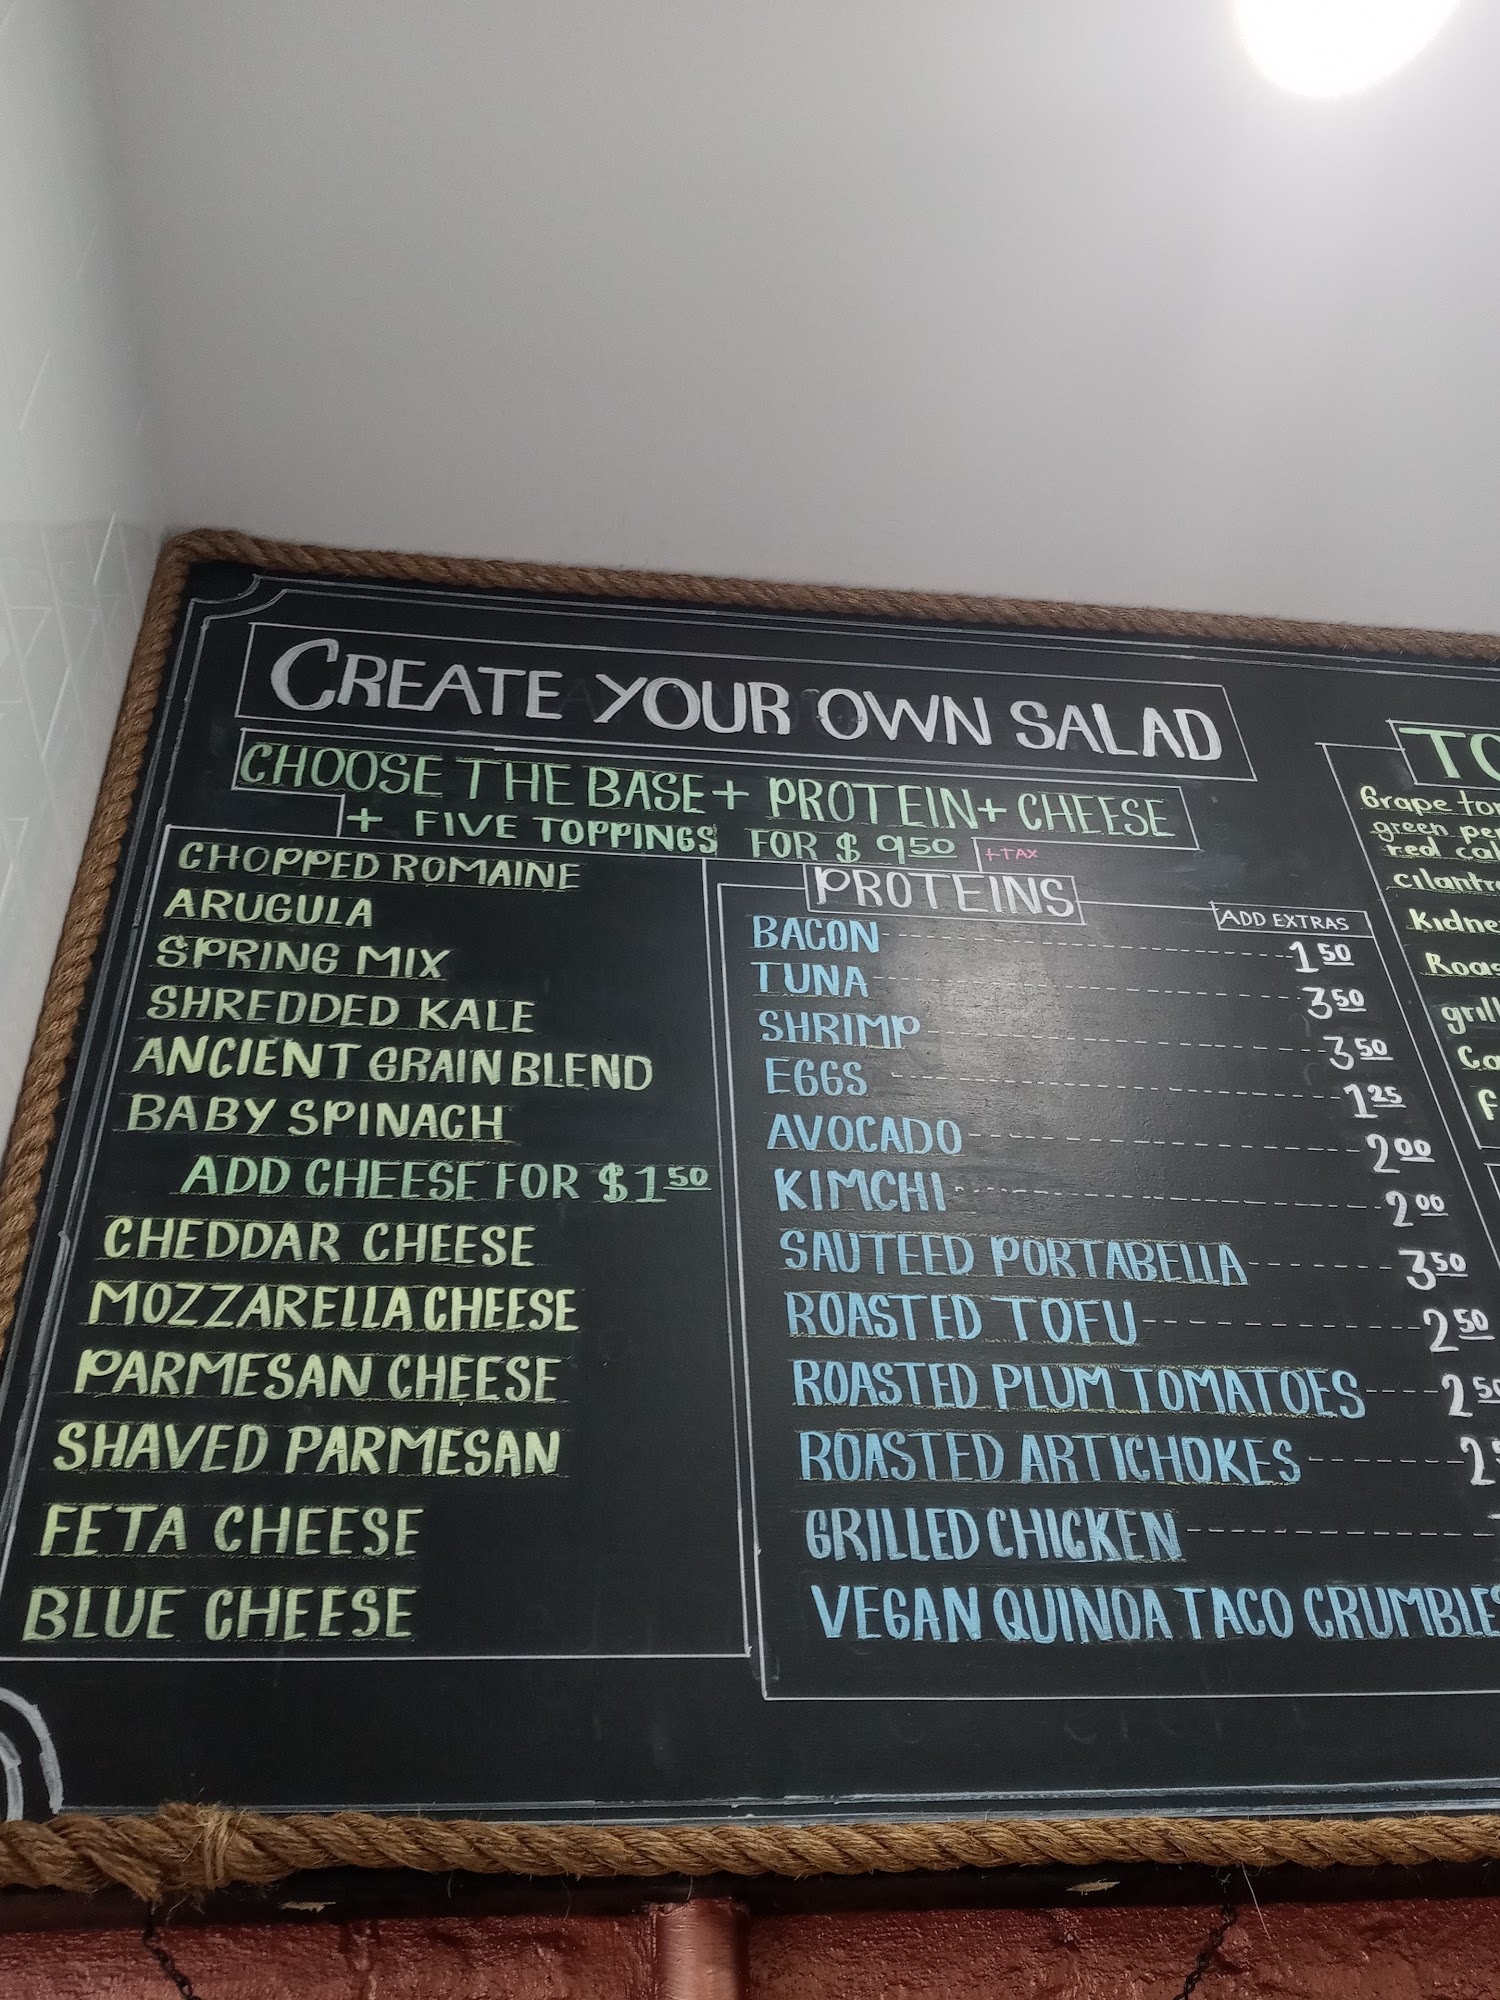 CREATE YOUR OWN SALAD
CHOOSE THE BASE + PROTEIN + CHEESE
+ FIVE TOPPINGS FOR $ 9 50 +TAX
CHOPPED ROMAINE
ARUGULA
SPRING MIX
SHREDDED KALE
ANCIENT GRAIN BLEND
BABY SPINACH
ADD CHEESE FOR $1 50
CHEDDAR CHEESE
MOZZARELLA CHEESE
PARMESAN CHEESE
SHAVED PARMESAN
FETA CHEESE
BLUE CHEESE
PROTEINS
ADD EXTRAS
BACON 1 50
TUNA 3 50
SHRIMP 3 50
EGGS 1 25
AVOCADO 2 00
KIMCHI 2 00
SAUTEED PORTABELLA 3 50
ROASTED TOFU 2 50
ROASTED PLUM TOMATOES 2 50
ROASTED ARTICHOKES 2
GRILLED CHICKEN
VEGAN QUINOA TACO CRUMBLES
Grape
green
red
Roas
grill